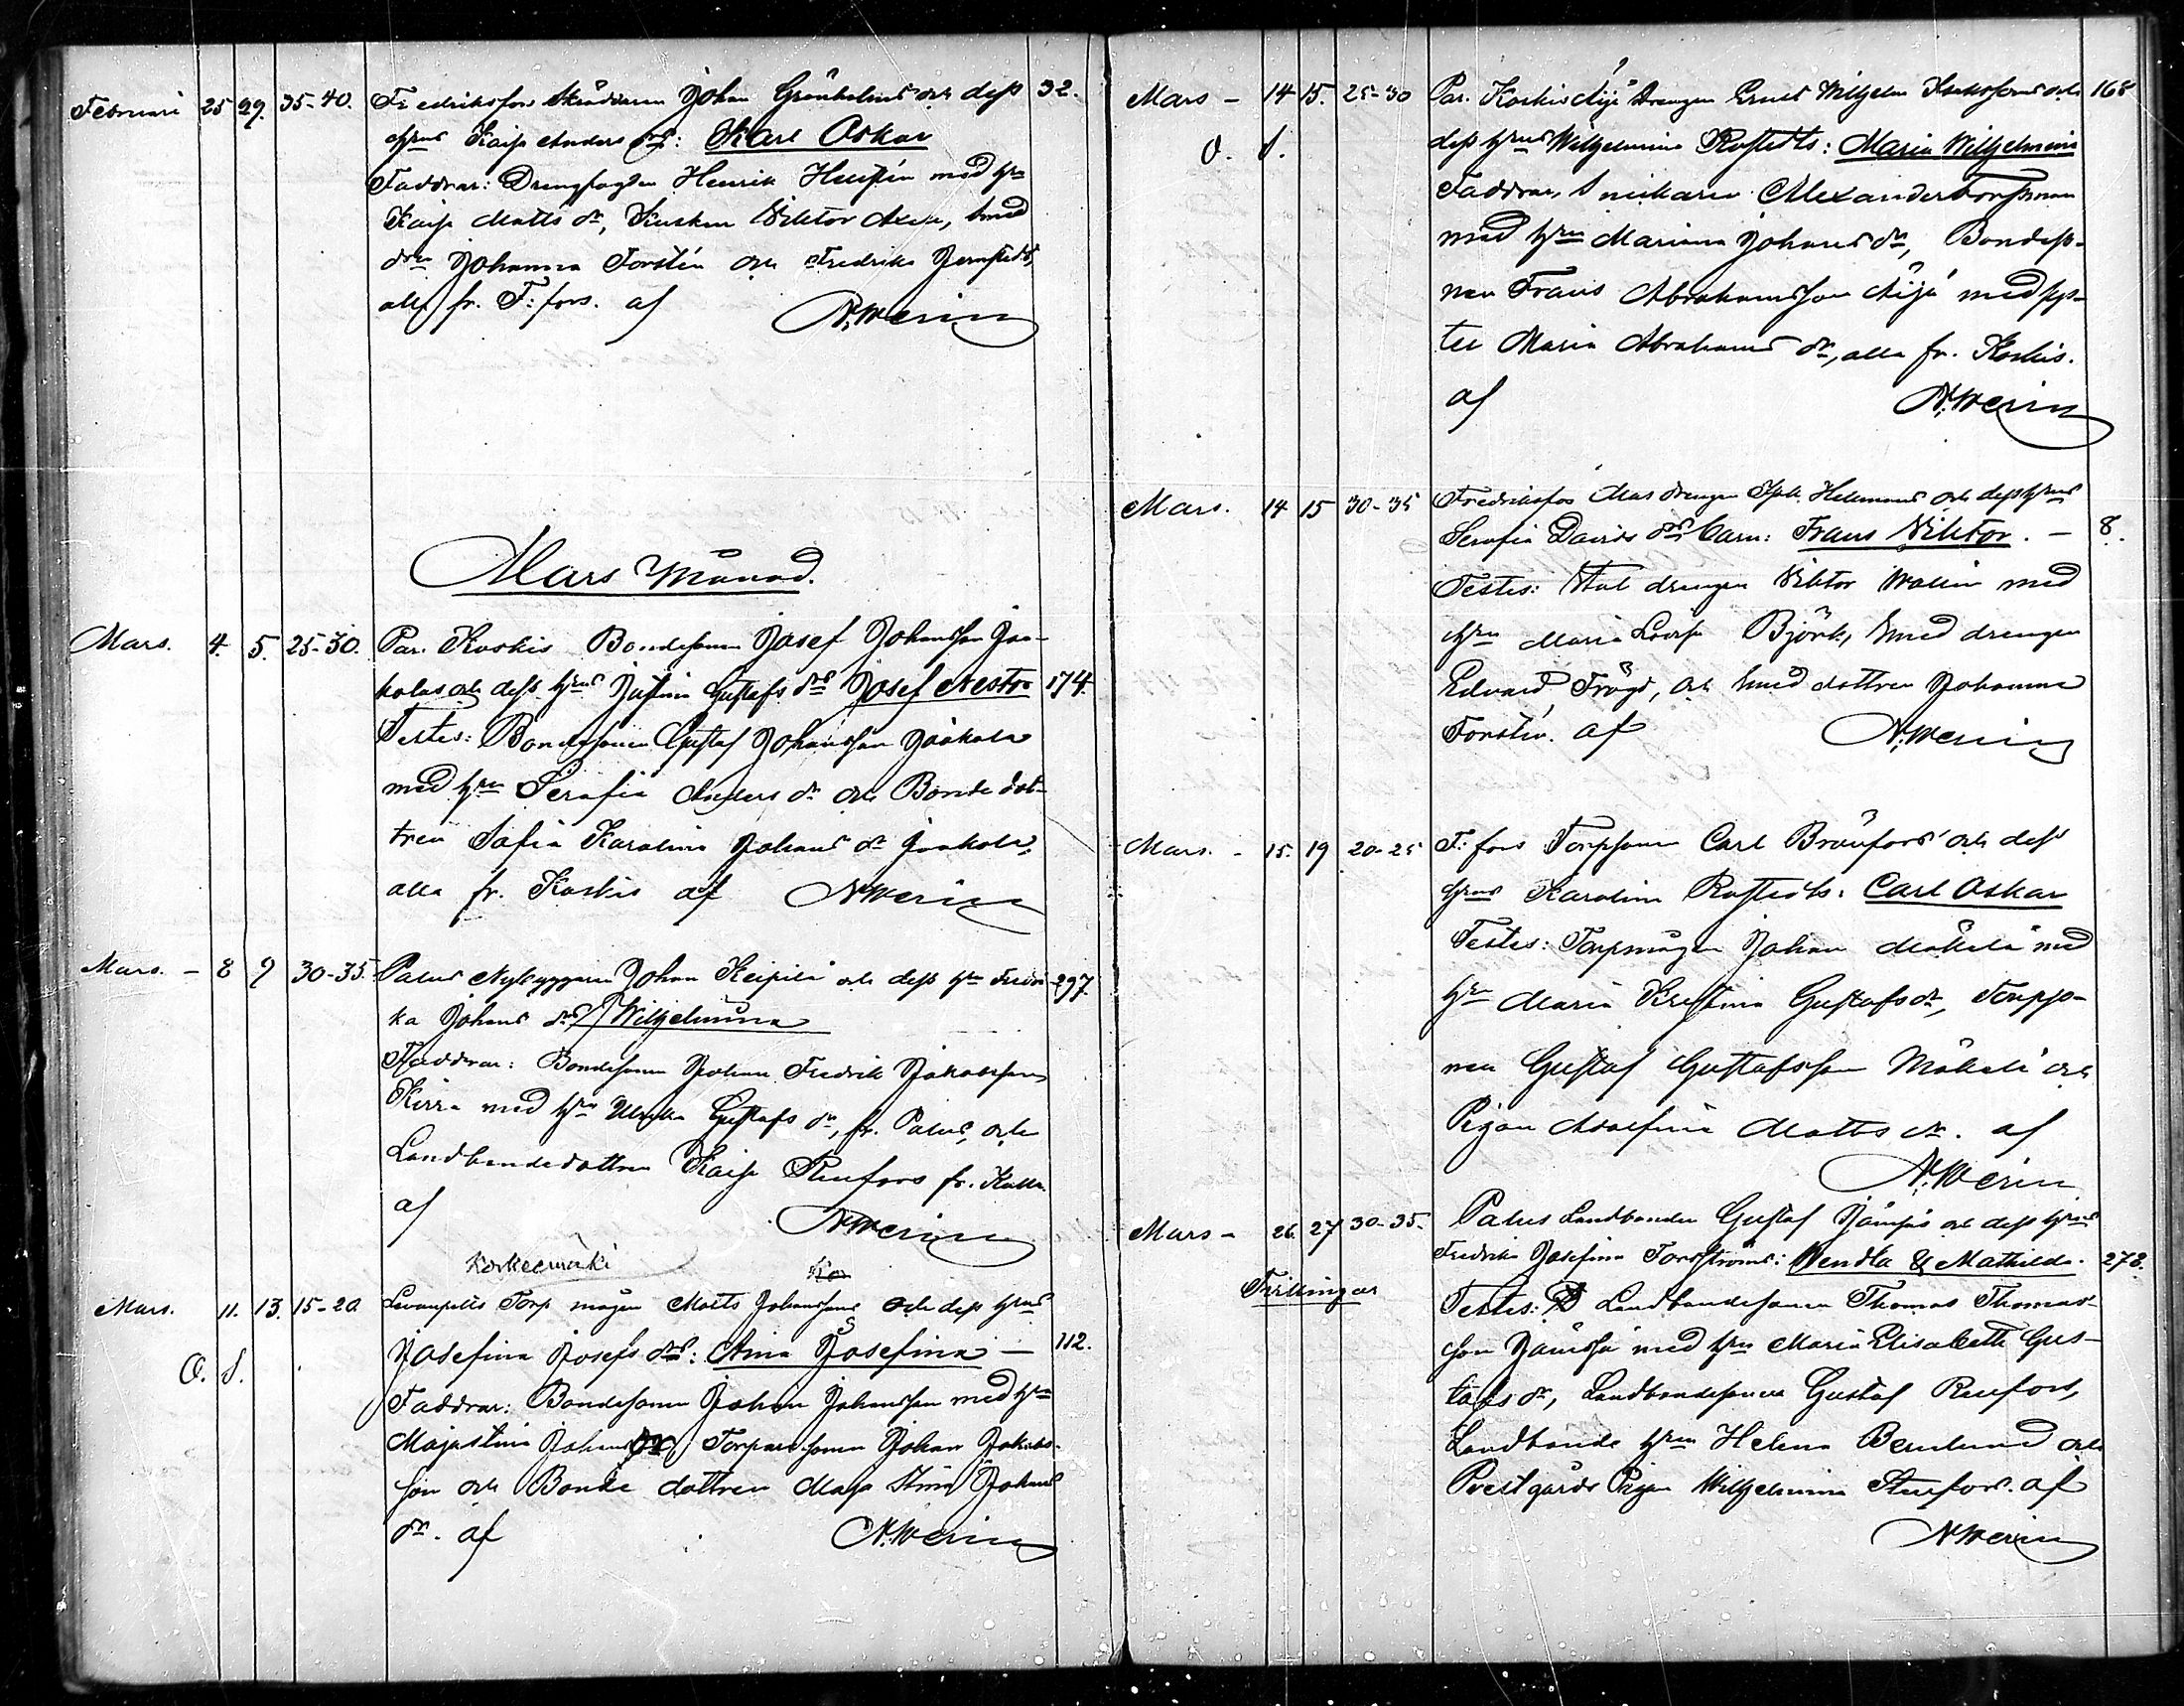 Februari 25 29. 35-40. Fredriksfors Skräddaren Johan Grönholms och dess 32.
hrus Kajsa Anders drs: Karl Oskar
Faddrar: Drengfogden Henrik med hru
Kajsa Matts dr, Kusken Viktor, smed
drn Johanna Forstén och Fredrika Jernstedt,
alla fr. F:fors. af N. Werin
Mars Månad.
Mars. 4. 5. 25-30. Par. Koskis Bondesonen Josef Johansson Jaa-
kolas och dess hrus Justina Gustafs drs Josef Nestor 174.
Testes: Bondesonen Gustaf Johansson Jaakola
med hru Serafia Anders dr och Bonde dot-
tren Sofia Karolina Johans dr Jaakola,
alla fr. Koskis af N Werin
Mars. - 8 9 30-35. Palus Nybyggaren Johan Keipilä och dess hru Fredri- 297.
ka Johans drs Wilhelmina
Faddrar: Bondesonen Johan Fredrik Jakobsson
Kirra med hru Ulrika Gustafs dr, fr. Palus, och
Landbondedottren Kajsa Renfors fr.
af N Werin
Korkeemäki
Mars. 11. 13. 15-20. Torp mågen Matts Johanssons och dess hrus
Josefina Josefs drs: Aina Josefina - 112.
O. S.
Faddrar: Bondesonen Johan Johansson med hru
Majastina Johans dr, Torparesonen Johan Jakobs-
son och Bonde dottren Maja Stina Johans
dr. af N. Werin
Mars - 14 15. 25-30 Par. Koskis Äijä drengen Ernst Wilhelm Isakssons och 168
O. S. dess hrus Wilhelmina Rostedts: Maria Wilhelmina
Faddrar, Snickaren Alexander Forsman
med hru Mariana Johans dr, Bondeso-
nen Frans Abrahamsson Äijä med sys-
ter Maria Abrahams dr, alla fr. Koskis.
af N. Werin
Mars. 14 15 30-35 Fredriksfors Mas drengen Hellmans och dess hrus
Serafia Davids drs barn: Frans Viktor. - 8.
Testes: Stal drengen Viktor Wallin med
hru Maria Lovisa Björk, smed drengen
Edvard Frögd, och smed dottren Johanna
Forstén. af N. Werin
Mars. - 15. 19 20-25 F:fors Torpsonen Carl Brånfors och dess
hrus Karolina Rostedts: Carl Oskar
Testes: Torpmågen Johan Mäkelä med
hru Maria Kristina Gustafs dr, Torpso-
nen Gustaf Gustafsson Mäkelä och
Pigan Adolfina Matts dr. af
N. Werin
Mars - 26. 27 30-35. Palus Landbonden Gustaf Jämsäs och dess hrus
Fredrika Josefina Forsströms: Wendla & Mathilda. 278.
Tvillingar
Testes: Landbondesonen Thomas Thomas-
son Jämsä med hru Maria Elisabeth Gus-
tafs dr, Landbondesonen Gustaf Renfors,
Landbonde hrun Helena Bernlund och
Prestgårds Pigan Wilhelmina Stenfors. af
N Werin